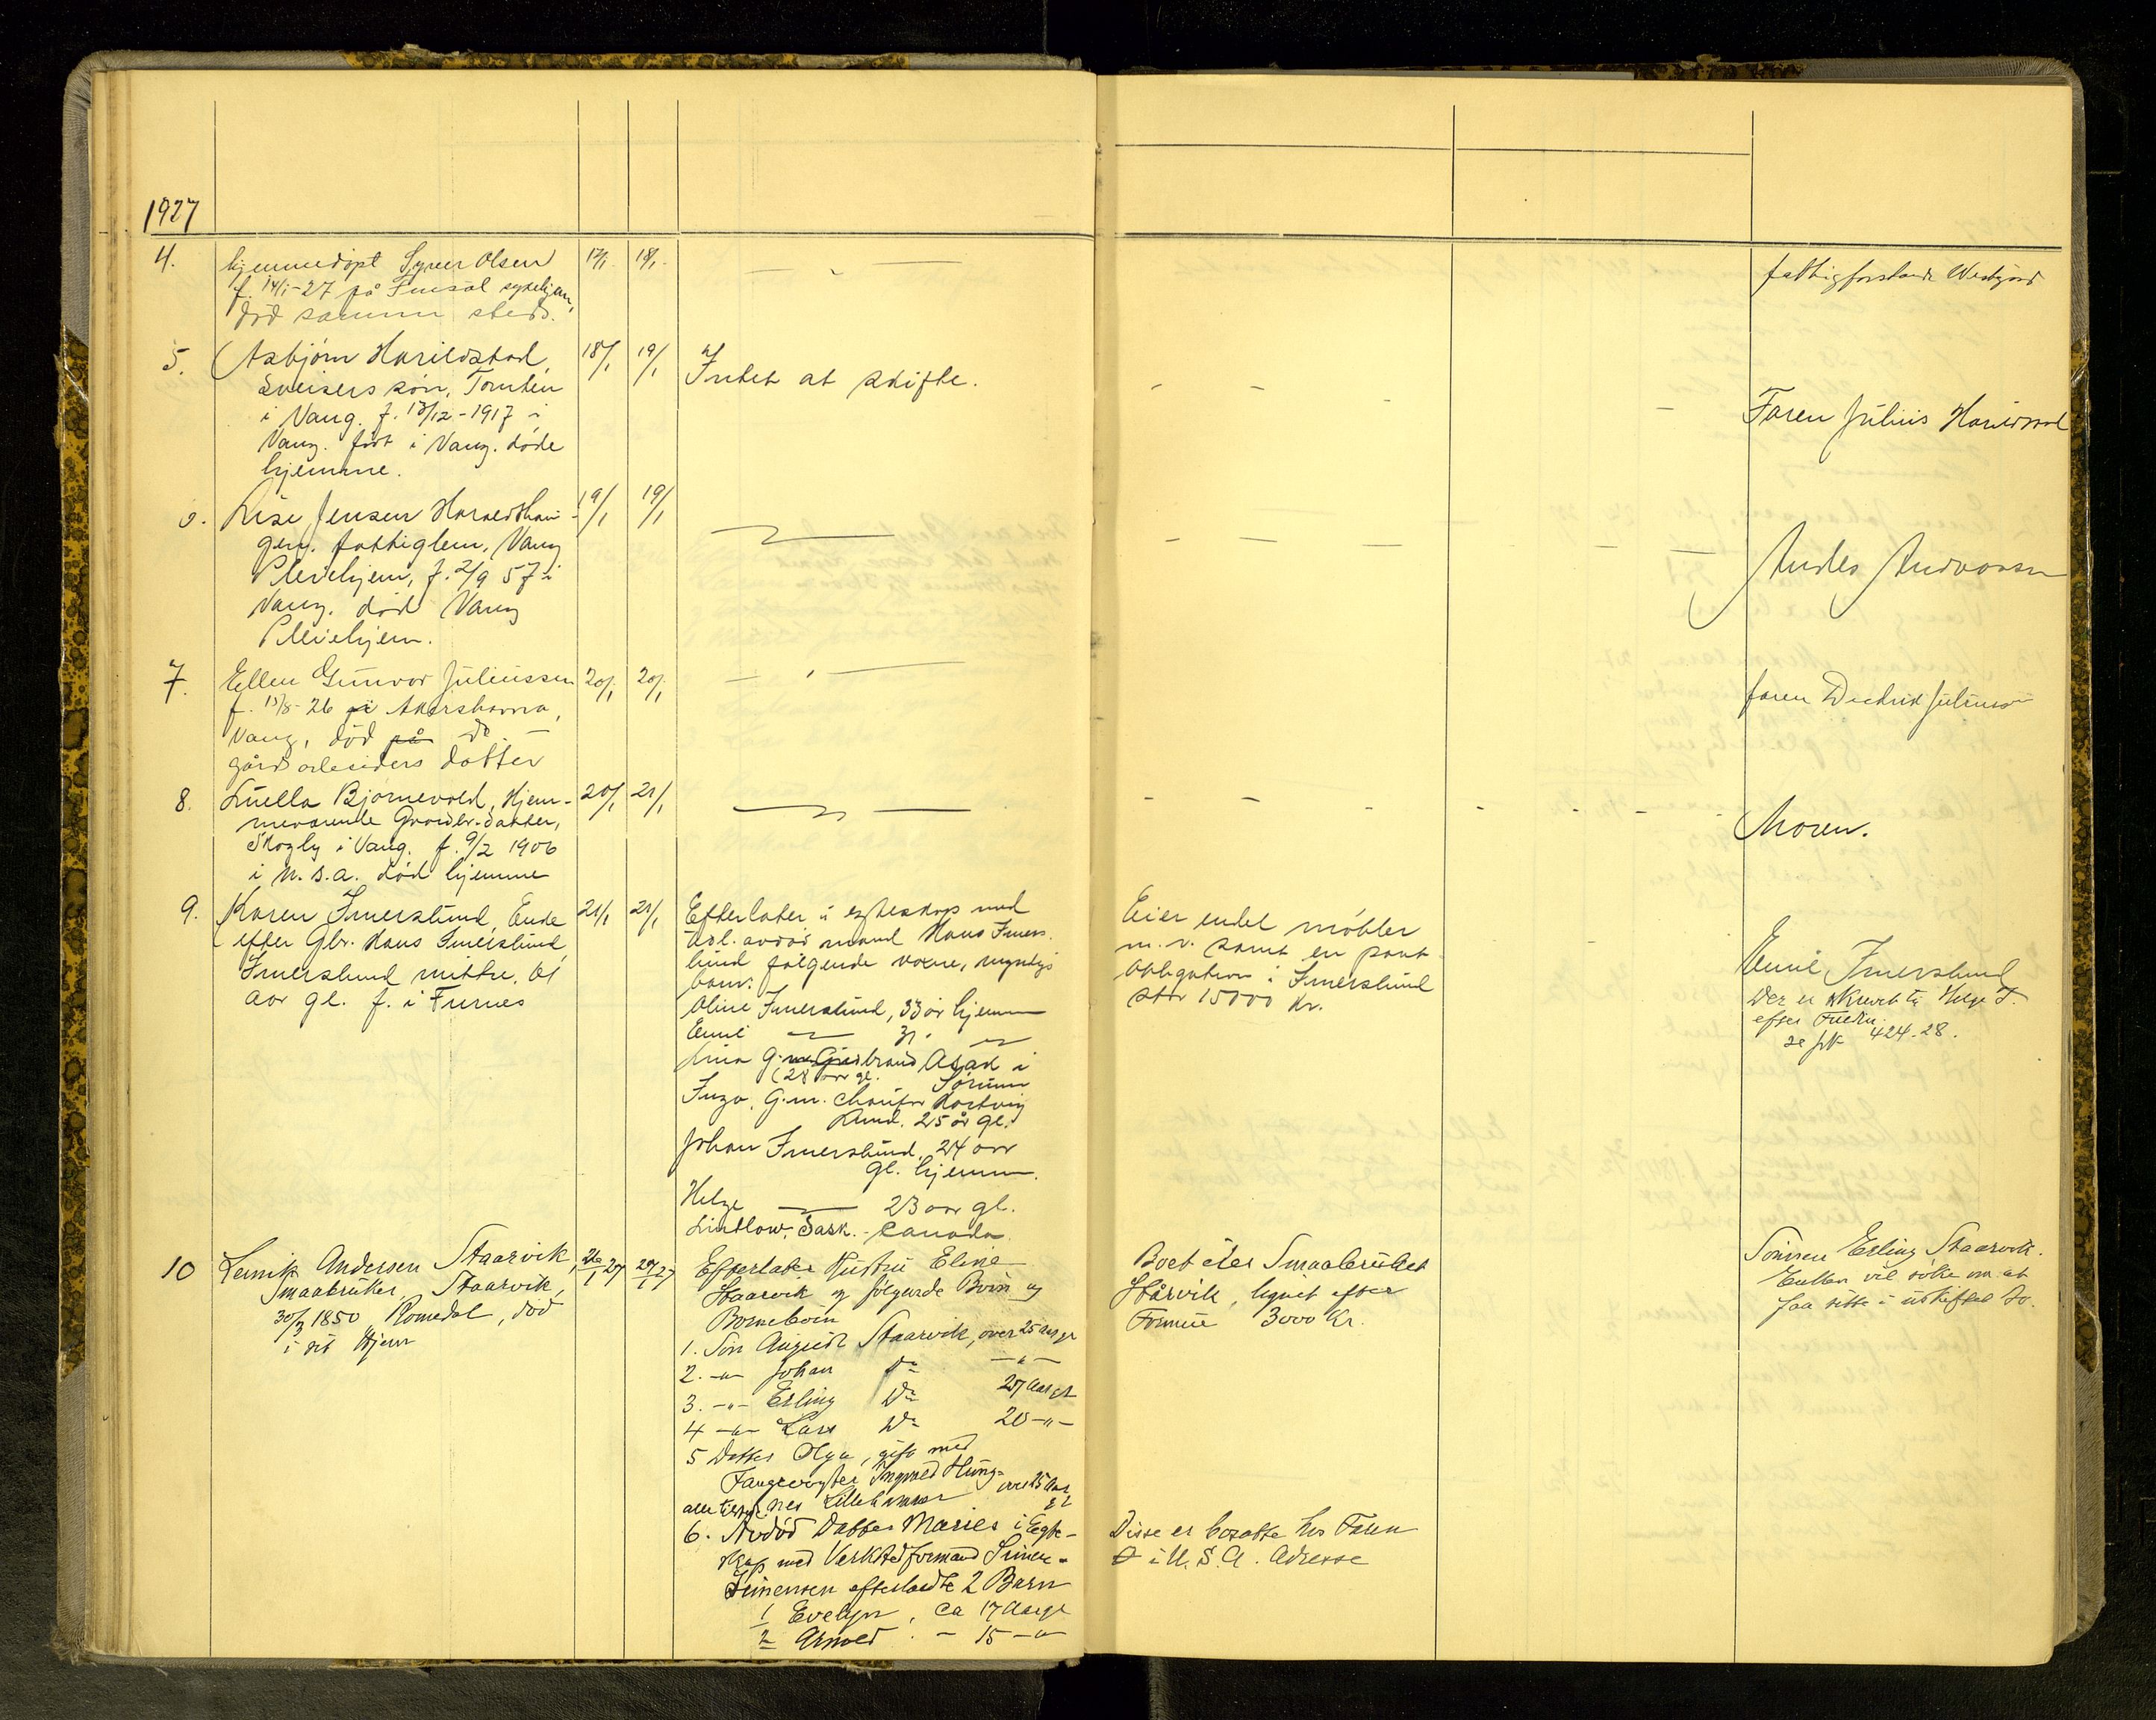 1927
4. hjemmedöpt Syver Olsen 17/1 18/1
f. 14/1-27 på Finsal sykehjem,
död samme sted.
fattigforstander Westgård
5. Asbjørn Harildstad, 18/1 19/1 Intet at skifte.
Sveisers søn, Tomten
i Vang. f. 13/12-1917 i
Vang. født i Vang. døde
hjemme.
Faren Julius Harildstad
6. Lise Jensen Haraldshau- 19/1 19/1
gen. fattiglem, Vang
Pleiehjem, f. 2/9 57 i
Vang. død Vang
Pleiehjem.
Anders Andreassen
7. Ellen Gunvor Juliussen 20/1 20/1
f. 13/8-26 på Akershavna,
Vang, död på do
gårdarbeiders datter
faren Diedrik Juliussen
8. Luella Bjørnevold, Hjem- 20/1 21/1
meværende Gaardbr. datter,
Skogly i Vang. f. 9/2 1906
i U.S.A. død hjemme
Moren.
9. Karen Imerslund, Enke 21/1 21/1
efter Gbr. Hans Imerslund,
Imerslund mittre. 61
aar gl. f. i Furnes
Efterlater i egteskap med
tidl. avdød mand Hans Imers-
lund følgende voxne, myndige
barn:
Aline Imerslund, 33 år hjemme
Emil — 31.
Lina G. m. Gudbrand Asak i
(28 aar gl. Sørum
Inga, G.m. Chauffør Hartvig
Lund. 25 år gl.
Johan Imerslund, 24 aar
gl. hjemme.
Helge — 23 aar gl.
Lintlaw, Sask. - Canada.
Eier endel møbler
m. v. samt en pant
obligation i Imerslund
stor 15000 kr.
Emil Imerslund
Der er skrevet til Helge I.
efter
se jrk 424.28.
10 Lemik Andersen Staarvik, 26/1 27 29/1 27
Smaabruker, Staarvik,
30/3 1850, Romedal, død
i sit Hjem
Efterlater Hustru Eline
Staarvik og følgende Børn og
Børnebørn
1. Søn August Staarvik, over 25 Aar gl
2. -"- Johan Do -"-
3. -"- Erling Do 27 Aar gl
4 -"- Lars Do 20 -"-
5 Datter Olga, gift med
Fangevogter Ingvald Hung-
nes Lillehammer over 25 Aar
alle tilstede. gl
6. Avdød Datter Maries i Egte-
skap med Verkstedformand Simen
Simensen efterladte 2 Barn
1 Evelyn, ca 17 Aar gl
2 Arnold - 15 -"-
Boet eier Smaabruket
Stårvik, lignet efter
Formue 3000 Kr.
Disse er bosatte hos Faren
i U.S.A. Adresse
Sønnen Erling Staarvik.
Enken vil søke om at
faa sitte i uskiftet bo.